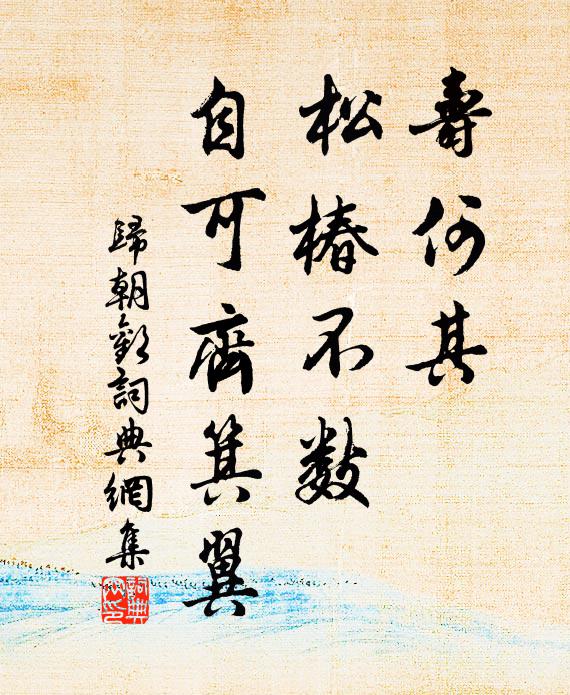 壽何其
松椿不数
自可齊箕翼
歸朝歡詞典網集